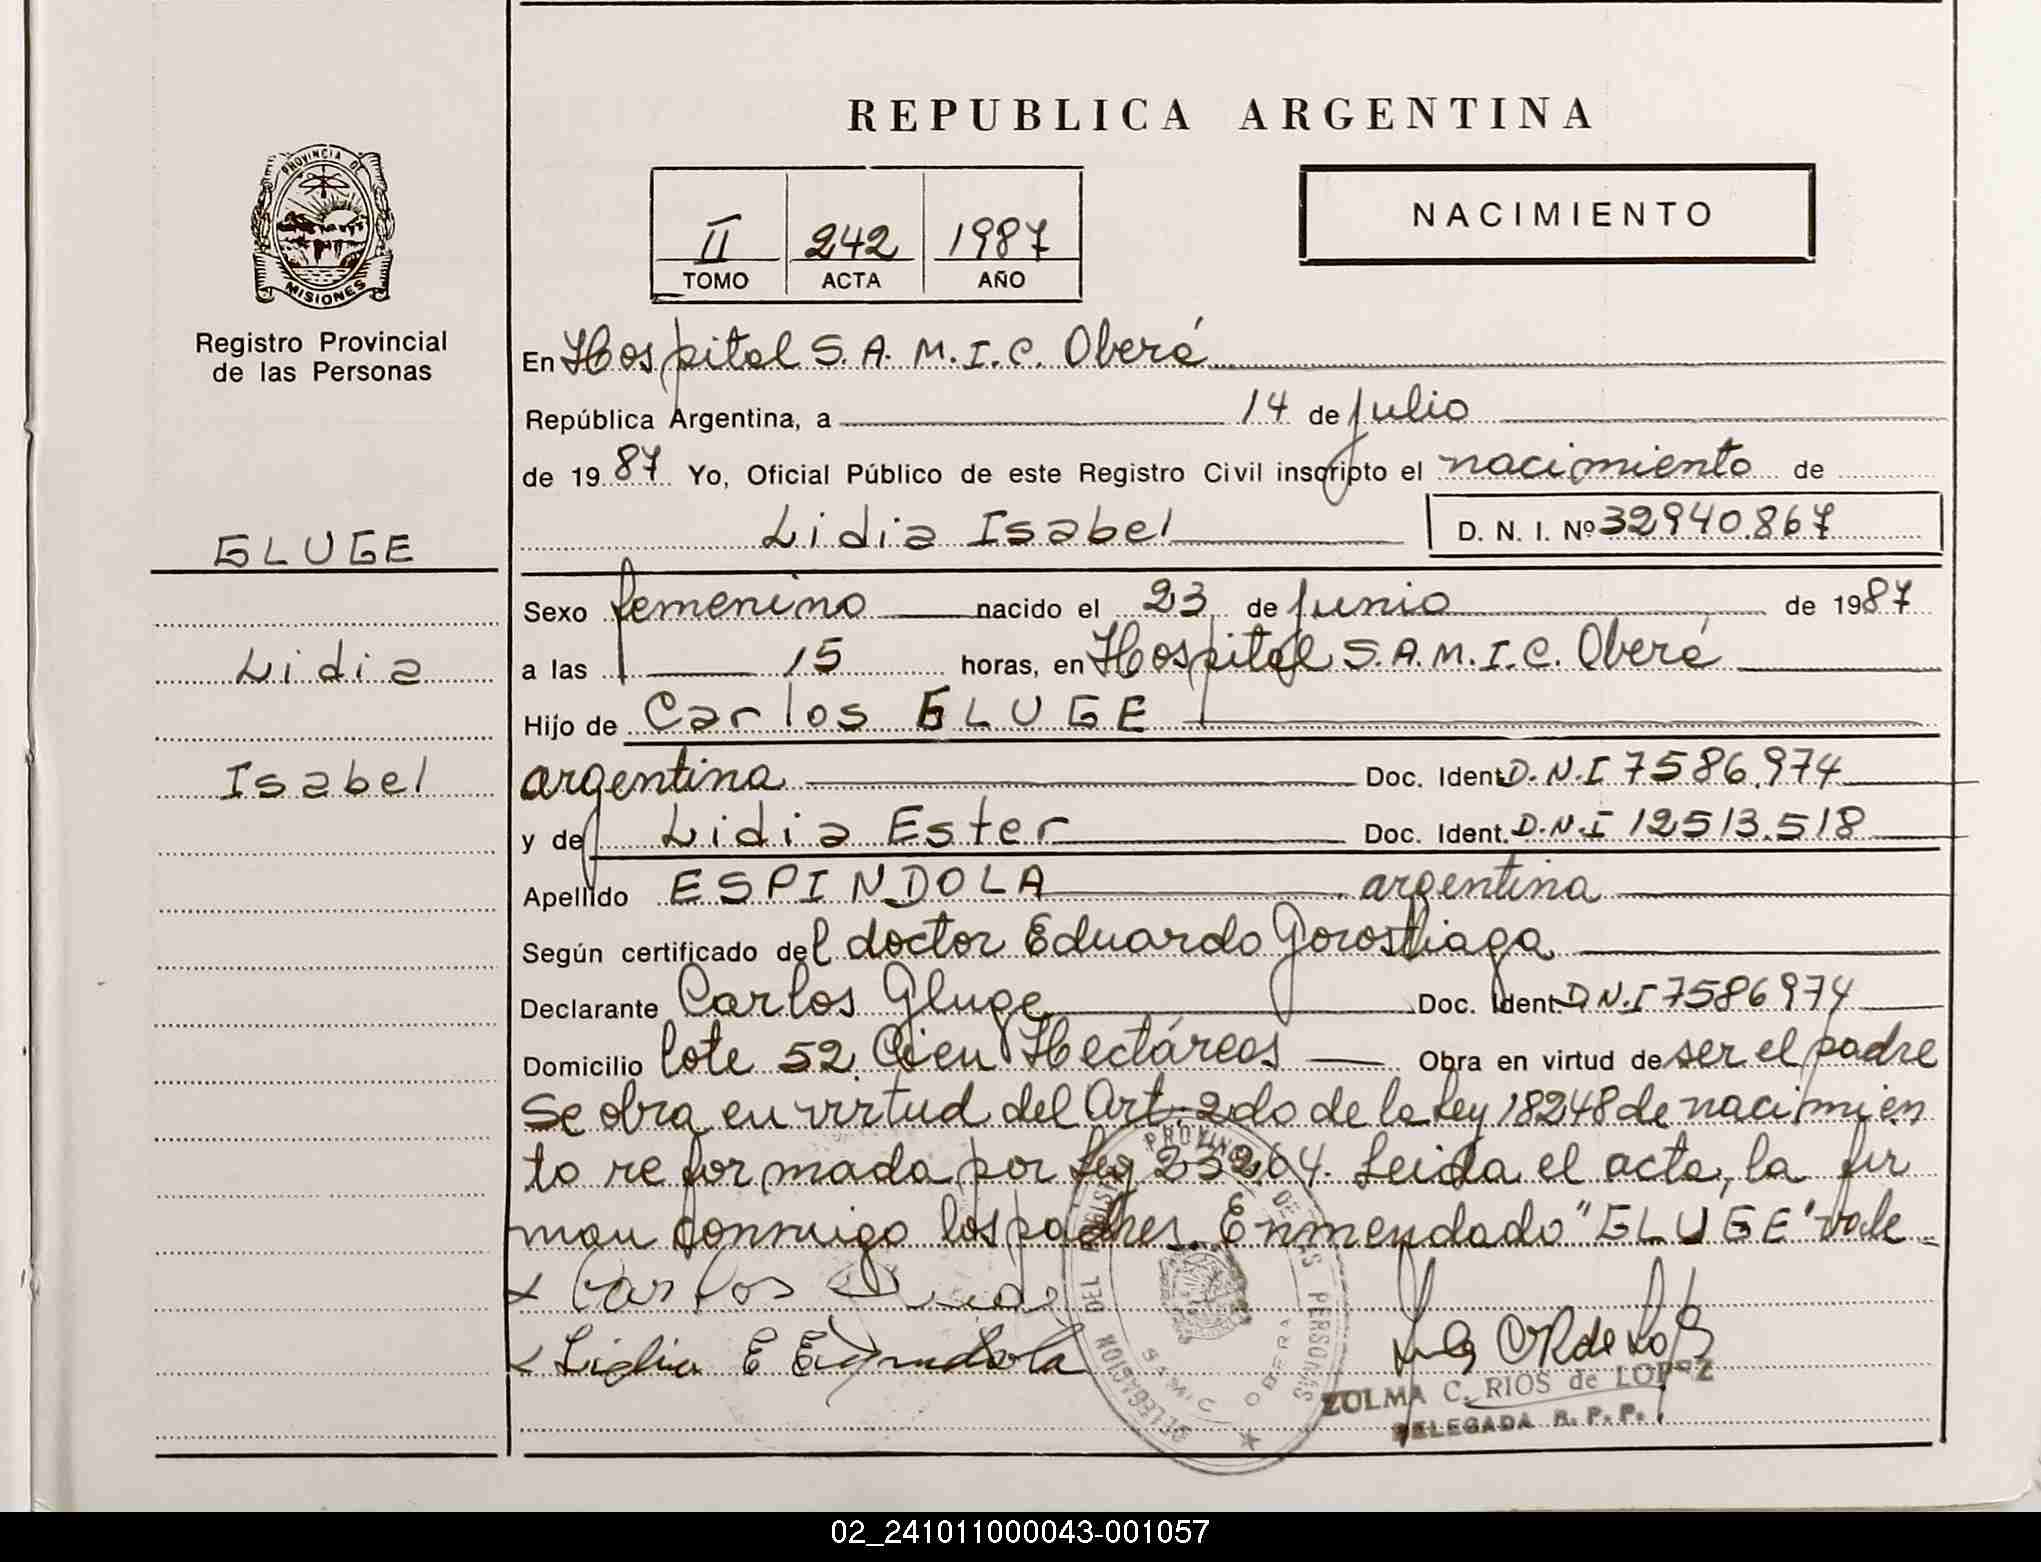 REPUBLICA ARGENTINA
PROVINCIA DE
MISIONES
Registro Provincial
de las Personas
II 242 1987
TOMO ACTA AÑO
NACIMIENTO
En Hospital S.A.M.I.C. Oberá
República Argentina, a 14 de julio
de 1987 Yo, Oficial Público de este Registro Civil inscripto el nacimiento de
Lidia Isabel D. N. I. Nº 32940.867
GLUGE
Lidia
Isabel
Sexo femenino nacido el 23 de junio de 1987
a las 15 horas, en Hospital S.A.M.I.C. Oberá
Hijo de Carlos GLUGE
argentina Doc. Ident. D.N.I 7586.974
y de Lidia Ester Doc. Ident. D.N.I 12513.518
Apellido ESPINDOLA argentina
Según certificado del doctor Eduardo Gorostiaga
Declarante Carlos Gluge Doc. Ident. D.N.I 7586974
Domicilio lote 52 Cien Hectáreas Obra en virtud de ser el padre
Se obra en virtud del Art. 2do de la Ley 18248 de nacimien
to reformada por Ley 23264. Leida el acta, la fir
man conmigo los padres. Enmendado "GLUGE" vale
x Carlos
x Lidia E Espindola
DELEGACION DEL REGISTRO PROVINC. DE LAS PERSONAS
SAMIC OBERA
ZULMA C. RIOS de LOPEZ
DELEGADA R. P. P.
02_241011000043-001057